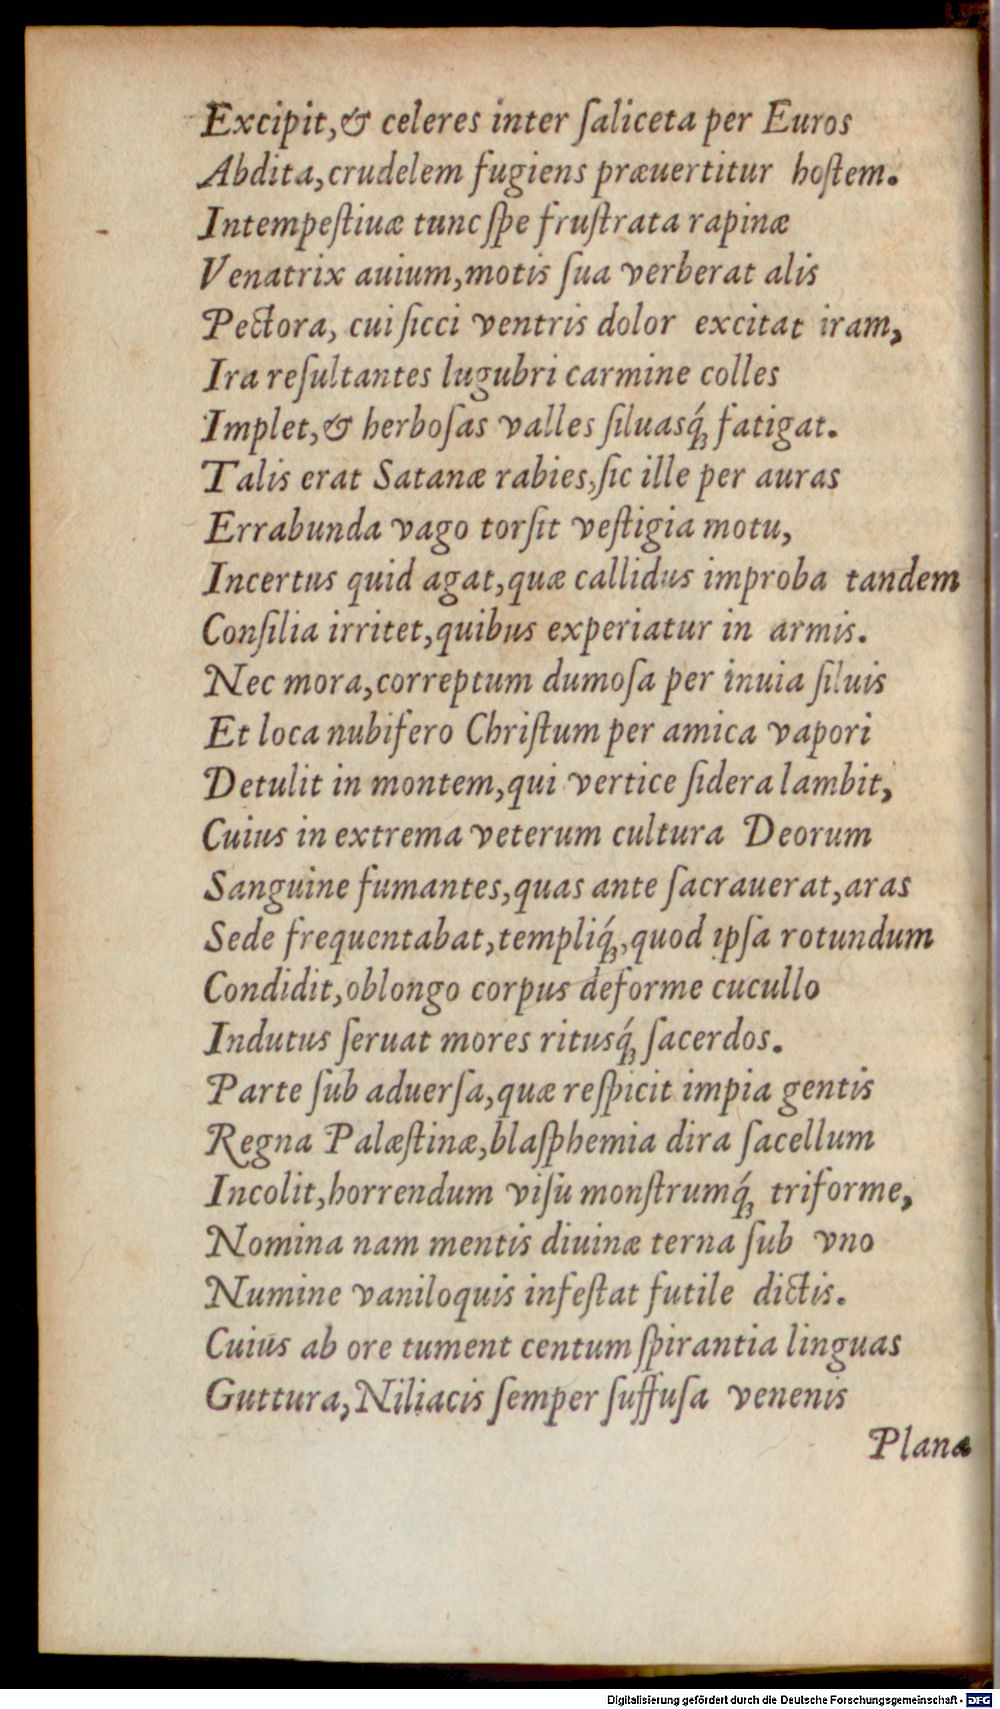 Excipit,& celeres inter ſaliceta per Euros
Abdita,crudelem fugiens præuertitur hoſtem.
Intempeſtiuæ tunc ſpe fruſtrata rapinæ
Venatrix auium,motis ſua verberat alis
Pectora, cui ſicci ventris dolor excitat iram,
Ira reſultantes lugubri carmine colles
Implet,& herboſas valles ſiluasq́; fatigat.
Talis erat Satanæ rabies,ſic ille per auras
Errabunda vago torſit veſtigia motu,
Incertus quid agat,quæ callidus improba tandem
Conſilia irritet,quibus experiatur in armis.
Nec mora,correptum dumoſa per inuia ſiluis
Et loca nubifero Chriſtum per amica vapori
Detulit in montem,qui vertice ſidera lambit,
Cuius in extrema veterum cultura Deorum
Sanguine fumantes,quas ante ſacrauerat,aras
Sede frequentabat,templiq́;,quod ipſa rotundum
Condidit,oblongo corpus deforme cucullo
Indutus ſeruat mores ritusq́; ſacerdos.
Parte ſub aduerſa,quæ reſpicit impia gentis
Regna Palæſtinæ,blaſphemia dira ſacellum
Incolit,horrendum viſu monſtrumq́; triforme,
Nomina nam mentis diuinæ terna ſub vno
Numine vaniloquis infeſtat futile dictis.
Cuius ab ore tument centum ſpirantia linguas
Guttura,Niliacis ſemper ſuffuſa venenis
Planæ
Digitalisierung gefördert durch die Deutsche Forschungsgemeinschaft - DFG